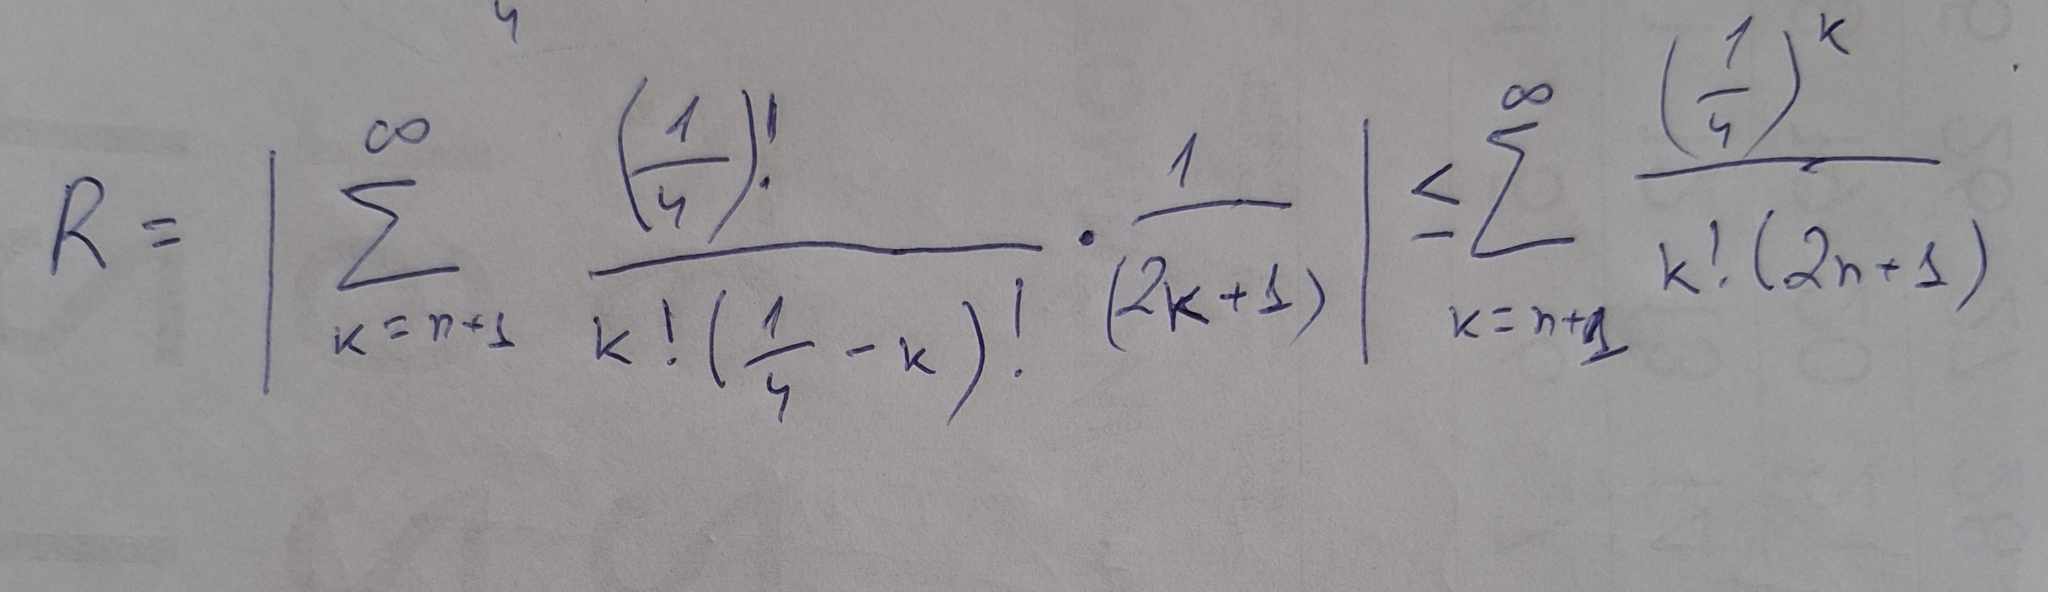 4
R = | ∞ ∑ k=n+1 (1/4)! / k!(1/4 - k)! · 1/(2k+1) | ≤ ∞ ∑ k=n+1 (1/4)^k / k!(2n+1)